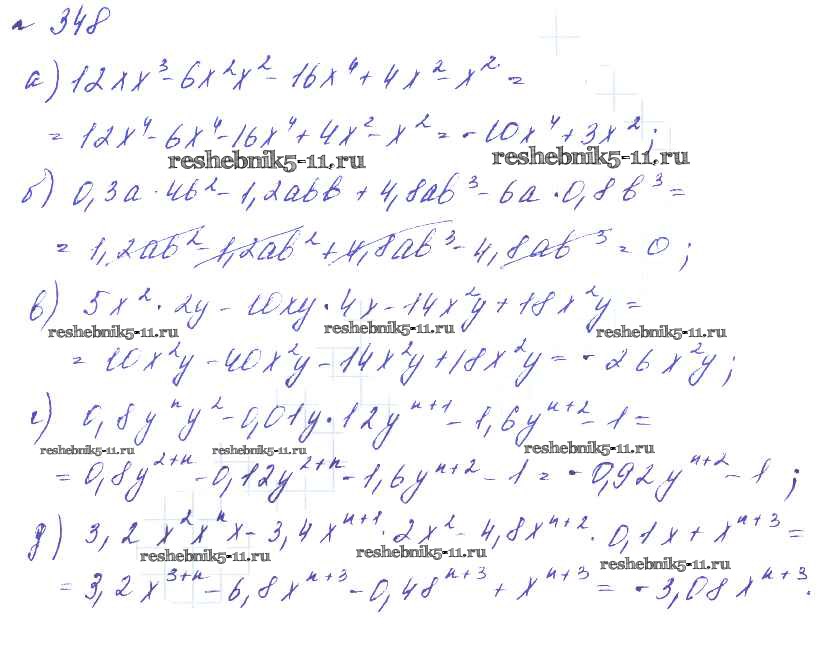 № 348
а) 12xx³ - 6x²x² - 16x⁴ + 4x² - x² =
= 12x⁴ - 6x⁴ - 16x⁴ + 4x² - x² = -10x⁴ + 3x²;
reshebnik5-11.ru reshebnik5-11.ru
б) 0,3a · 4b² - 1,2abb + 4,8ab³ - 6a · 0,8b³ =
= 1,2ab² - 1,2ab² + 4,8ab³ - 4,8ab³ = 0;
в) 5x² · 2y - 10xy · 4x - 14x²y + 18x²y =
reshebnik5-11.ru reshebnik5-11.ru reshebnik5-11.ru
= 10x²y - 40x²y - 14x²y + 18x²y = -26x²y;
г) 0,8yⁿy² - 0,01y · 12yⁿ⁺¹ - 1,6yⁿ⁺² - 1 =
reshebnik5-11.ru reshebnik5-11.ru reshebnik5-11.ru
= 0,8y²⁺ⁿ - 0,12y²⁺ⁿ - 1,6yⁿ⁺² - 1 = -0,92yⁿ⁺² - 1;
д) 3,2x²xⁿx - 3,4xⁿ⁺¹ · 2x² - 4,8xⁿ⁺² · 0,1x + xⁿ⁺³ =
reshebnik5-11.ru reshebnik5-11.ru reshebnik5-11.ru
= 3,2x³⁺ⁿ - 6,8xⁿ⁺³ - 0,48ⁿ⁺³ + xⁿ⁺³ = -3,08xⁿ⁺³.